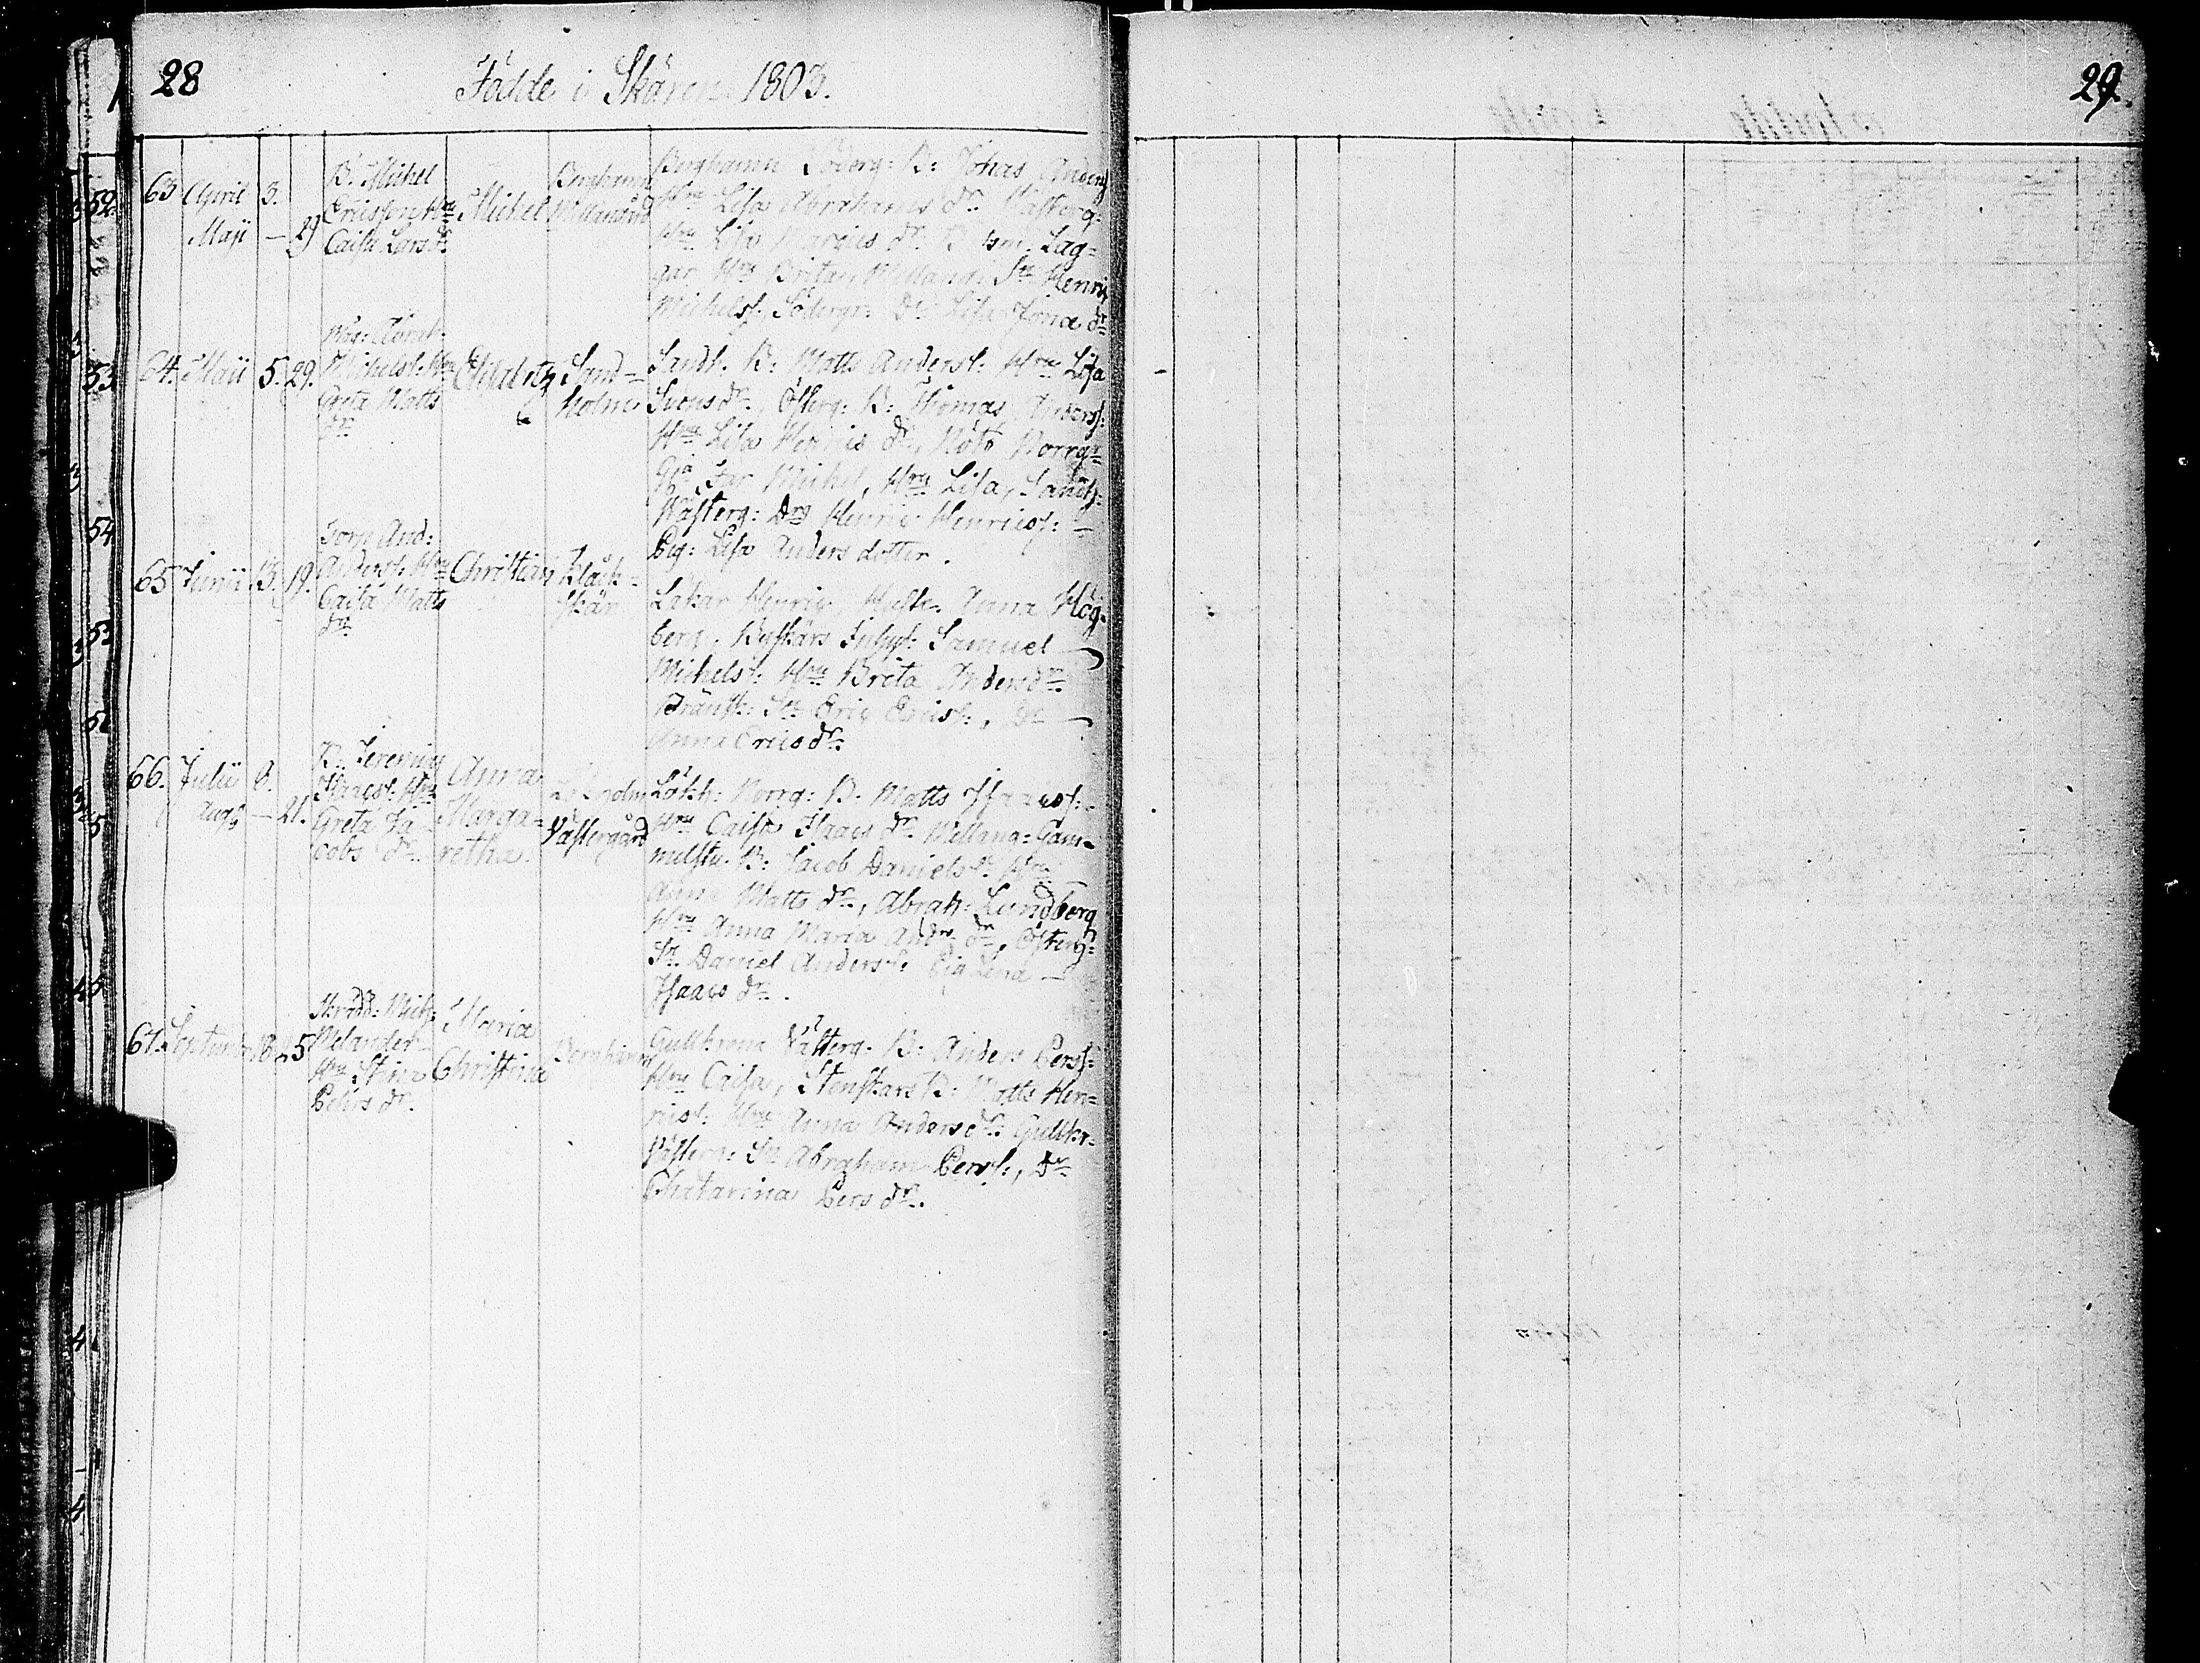 28
Födde i Skären 1803.
29.
63 April 3.
Maji — 29
B. Michel
Ericsson Hu
Caisa Lars dr.
Michel
Berghamn
Mellangård
Berghamn Söderg: B: Johas Anders
Hru Lisa Abrahams dr. Västerg:
Hru Lisa dr. Lag=
gar Hru Brita, Mellang. Sn Henric
Michelss. Söderg: Dr. Lisa Jona dr
64. Maii 5. 29.
Michelss. Hru
Greta Matts
dr.
Elisabeth
Sand=
holm
Sandh. B: Matts Anderss: Hru Lisa
Svens dr., Österg: B: Thomas Anderss:
Hru Lisa Henrics dr., Nötö Norrg=
Far Michel, Hru Lisa, Sandh:
Västerg: Drg Henric Henricss: —
Pig: Lisa Anders dotter.
65 Junii 13. 19.
Torp And:
Anderss: Hru
Caisa Matts
dr.
Christian
Kläck=
skär
Lökar Henric, Hustr. Anna Hög=
berg, Byskärs Inhys: Samuel —
Michelss: Hru Brita Anders dr.
Bränsk: Sn Eric Ericss:, Dr —
Anna Erics dr.
66. Julii 6.
Aug — 21.
B. Jeremias
Isacss: Hru
Greta Ja=
cobs dr.
Anna
Marga=
retha.
Lökholm
Västergård
Lökh: Norrg: B. Matts Isaacss:
Hru Caisa Isaacs dr. Mellang: Gam=
melstu. B: Jacob Danielss: Hru
Anna Matts dr., Abrah: Lundberg
Hru Anna Maria Andrs dr, Österg:
Sn. Daniel Anderss: Pig Lena —
Isaacs dr.
67. Septemb. 18. 25
Skrädd: Mich:
Melander
Hru Stina
Pehrs dr.
Maria
Christina
Berghamn
Gullkrona Västerg. B: Anders Perss:
Hru Caisa, Stenskärs B: Matts Hen=
ricss: Hru Anna Anders dr. Gullkr=
Västerg: Sn Abraham Perss:, Dr
Chatarina Pers dr.
52.
53
54